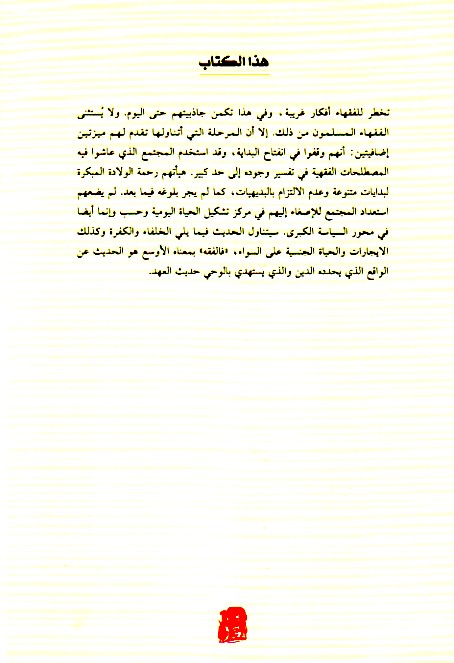 هذا الكتاب
تخطر للفقهاء أفكار غريبة، وفي هذا تكمن جاذبيتهم حتى اليوم. ولا يُستثنى
الفقهاء المسلمون من ذلك. إلا أن المرحلة التي أتناولها تقدم لهم ميزتين
إضافيتين: أنهم وقفوا في انفتاح البداية، وقد استخدم المجتمع الذي عاشوا فيه
المصطلحات الفقهية في تفسير وجوده إلى حد كبير. هيأتهم رحمة الولادة المبكرة
لبدايات متنوعة وعدم الالتزام بالبديهيات، كما لم يجر بلوغه فيما بعد. لم يضعهم
استعداد المجتمع للإصغاء إليهم في مركز تشكيل الحياة اليومية وحسب وإنما أيضا
في محور السياسة الكبرى. سيتناول الحديث فيما يلي الخلفاء والكفرة وكذلك
الايجارات والحياة الجنسية على السواء، «فالفقه» بمعناه الأوسع هو الحديث عن
الواقع الذي يحدده الدين والذي يستهدي بالوحي حديث العهد.